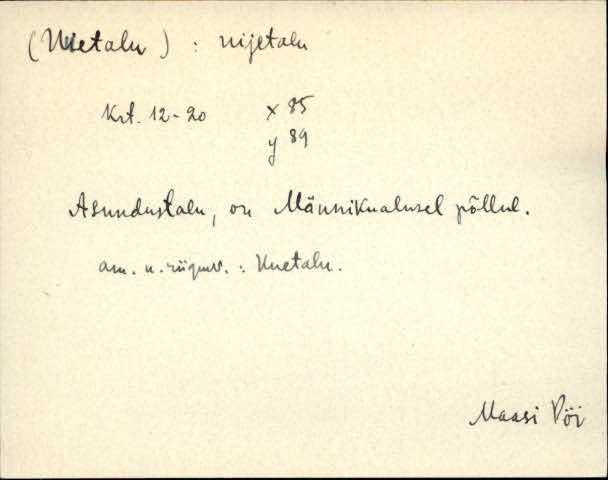 (Uietalu) : uijetalu
Krt. 12-20 x 85
y 89
Asundustalu, on Männikualusel põllul.
am. n. riigimv. : Uuetalu.
Maasi Pöi